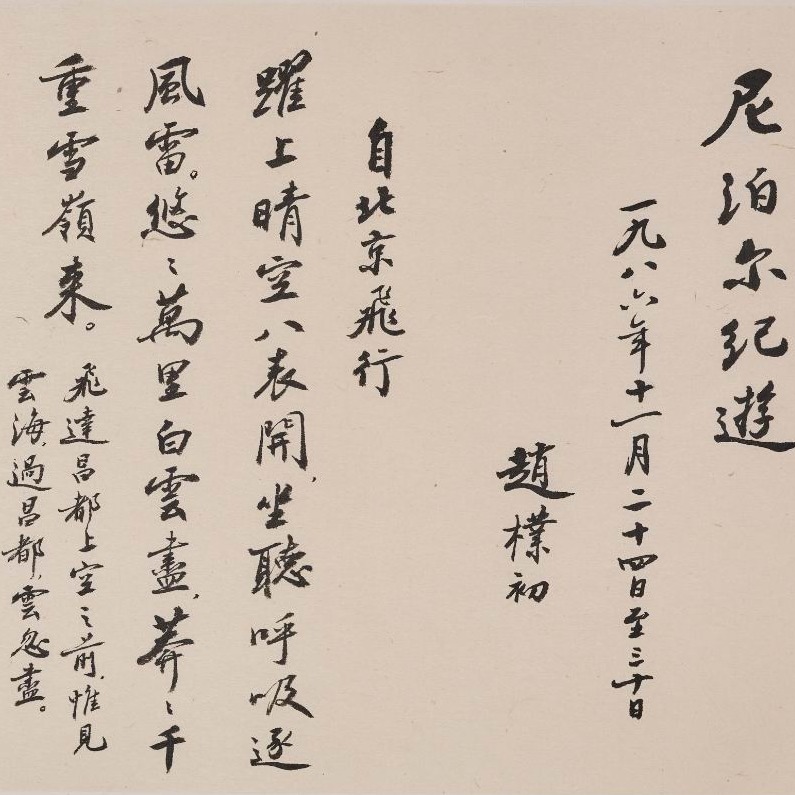 尼泊尔紀遊
一九八六年十一月二十四日至三十日
趙樸初
自北京飛行
躍上晴空八表開，坐聽呼吸逐
風雷。悠〻萬里白雲盡，莽〻千
重雪嶺來。
飛達昌都上空之前，惟見
雲海，過昌都，雲忽盡。